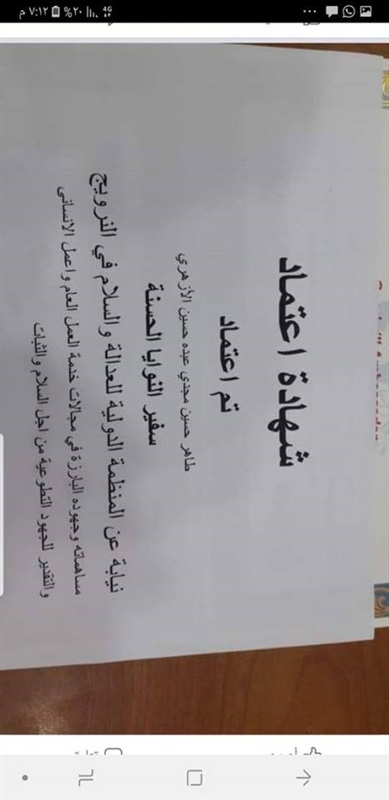 ٧:١٢ م ٪٢٠ 4G
شهادة اعتماد
تم اعتماد
طاهر حسين مجدي عبده حسين الأزهري
سفير النوايا الحسنة
نيابة عن المنظمة الدولية للعدالة والسلام في النرويج
مساهماته وجهوده البارزة في مجالات خدمة العمل العام واعمل الانسانى
والتقدير للجهود التطوعية من اجل السلام والثبات